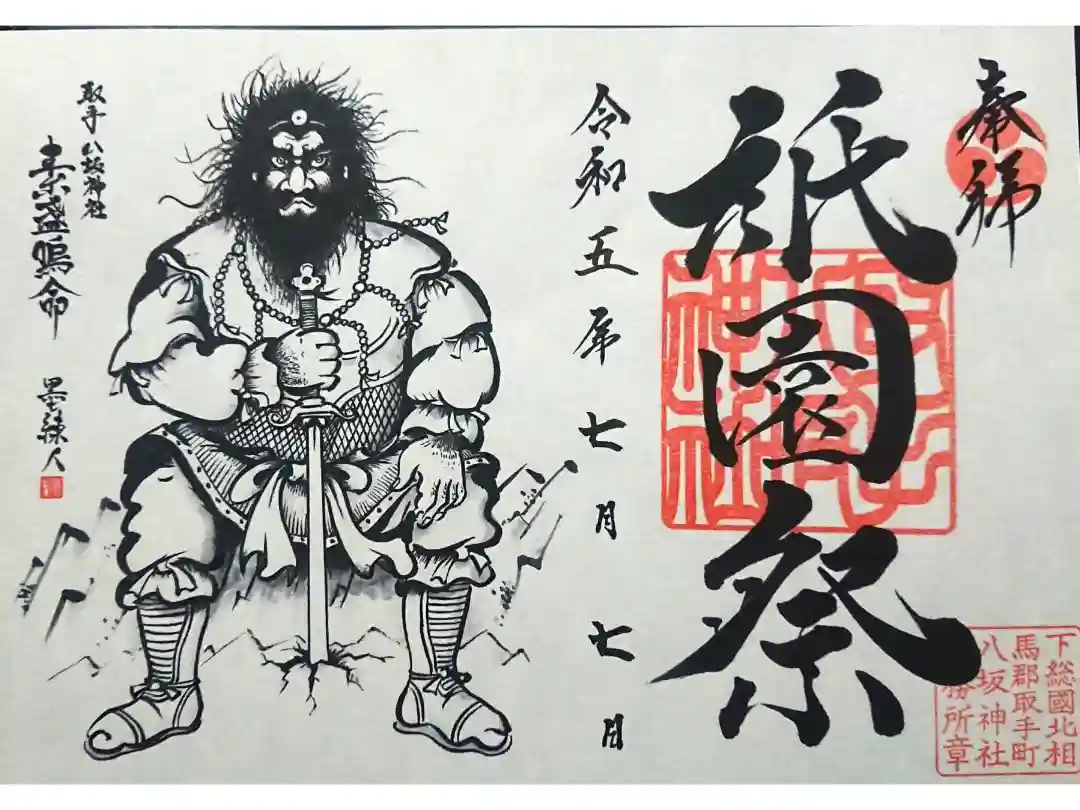 奉拝
祇園祭
令和五年七月七日
取手八坂神社
素盞嗚命
墨練人
下総國北相
馬郡取手町
八坂神社
務所章